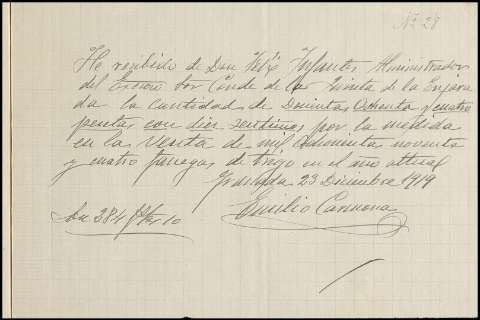 Nº 28
He recibido de Don Felix Infantes Administrador
del Excmo Sor Conde de la Quinta de la Enjara
da la cantidad de Docientas Ochenta y cuatro
pesetas con diez centimos por la medida
en la Venta de mil quinientas noventa
y cuatro fanegas de trigo en el año actual
Granada 23 Diciembre 1919
Son 284 Ptas 10
Emilio Carmona